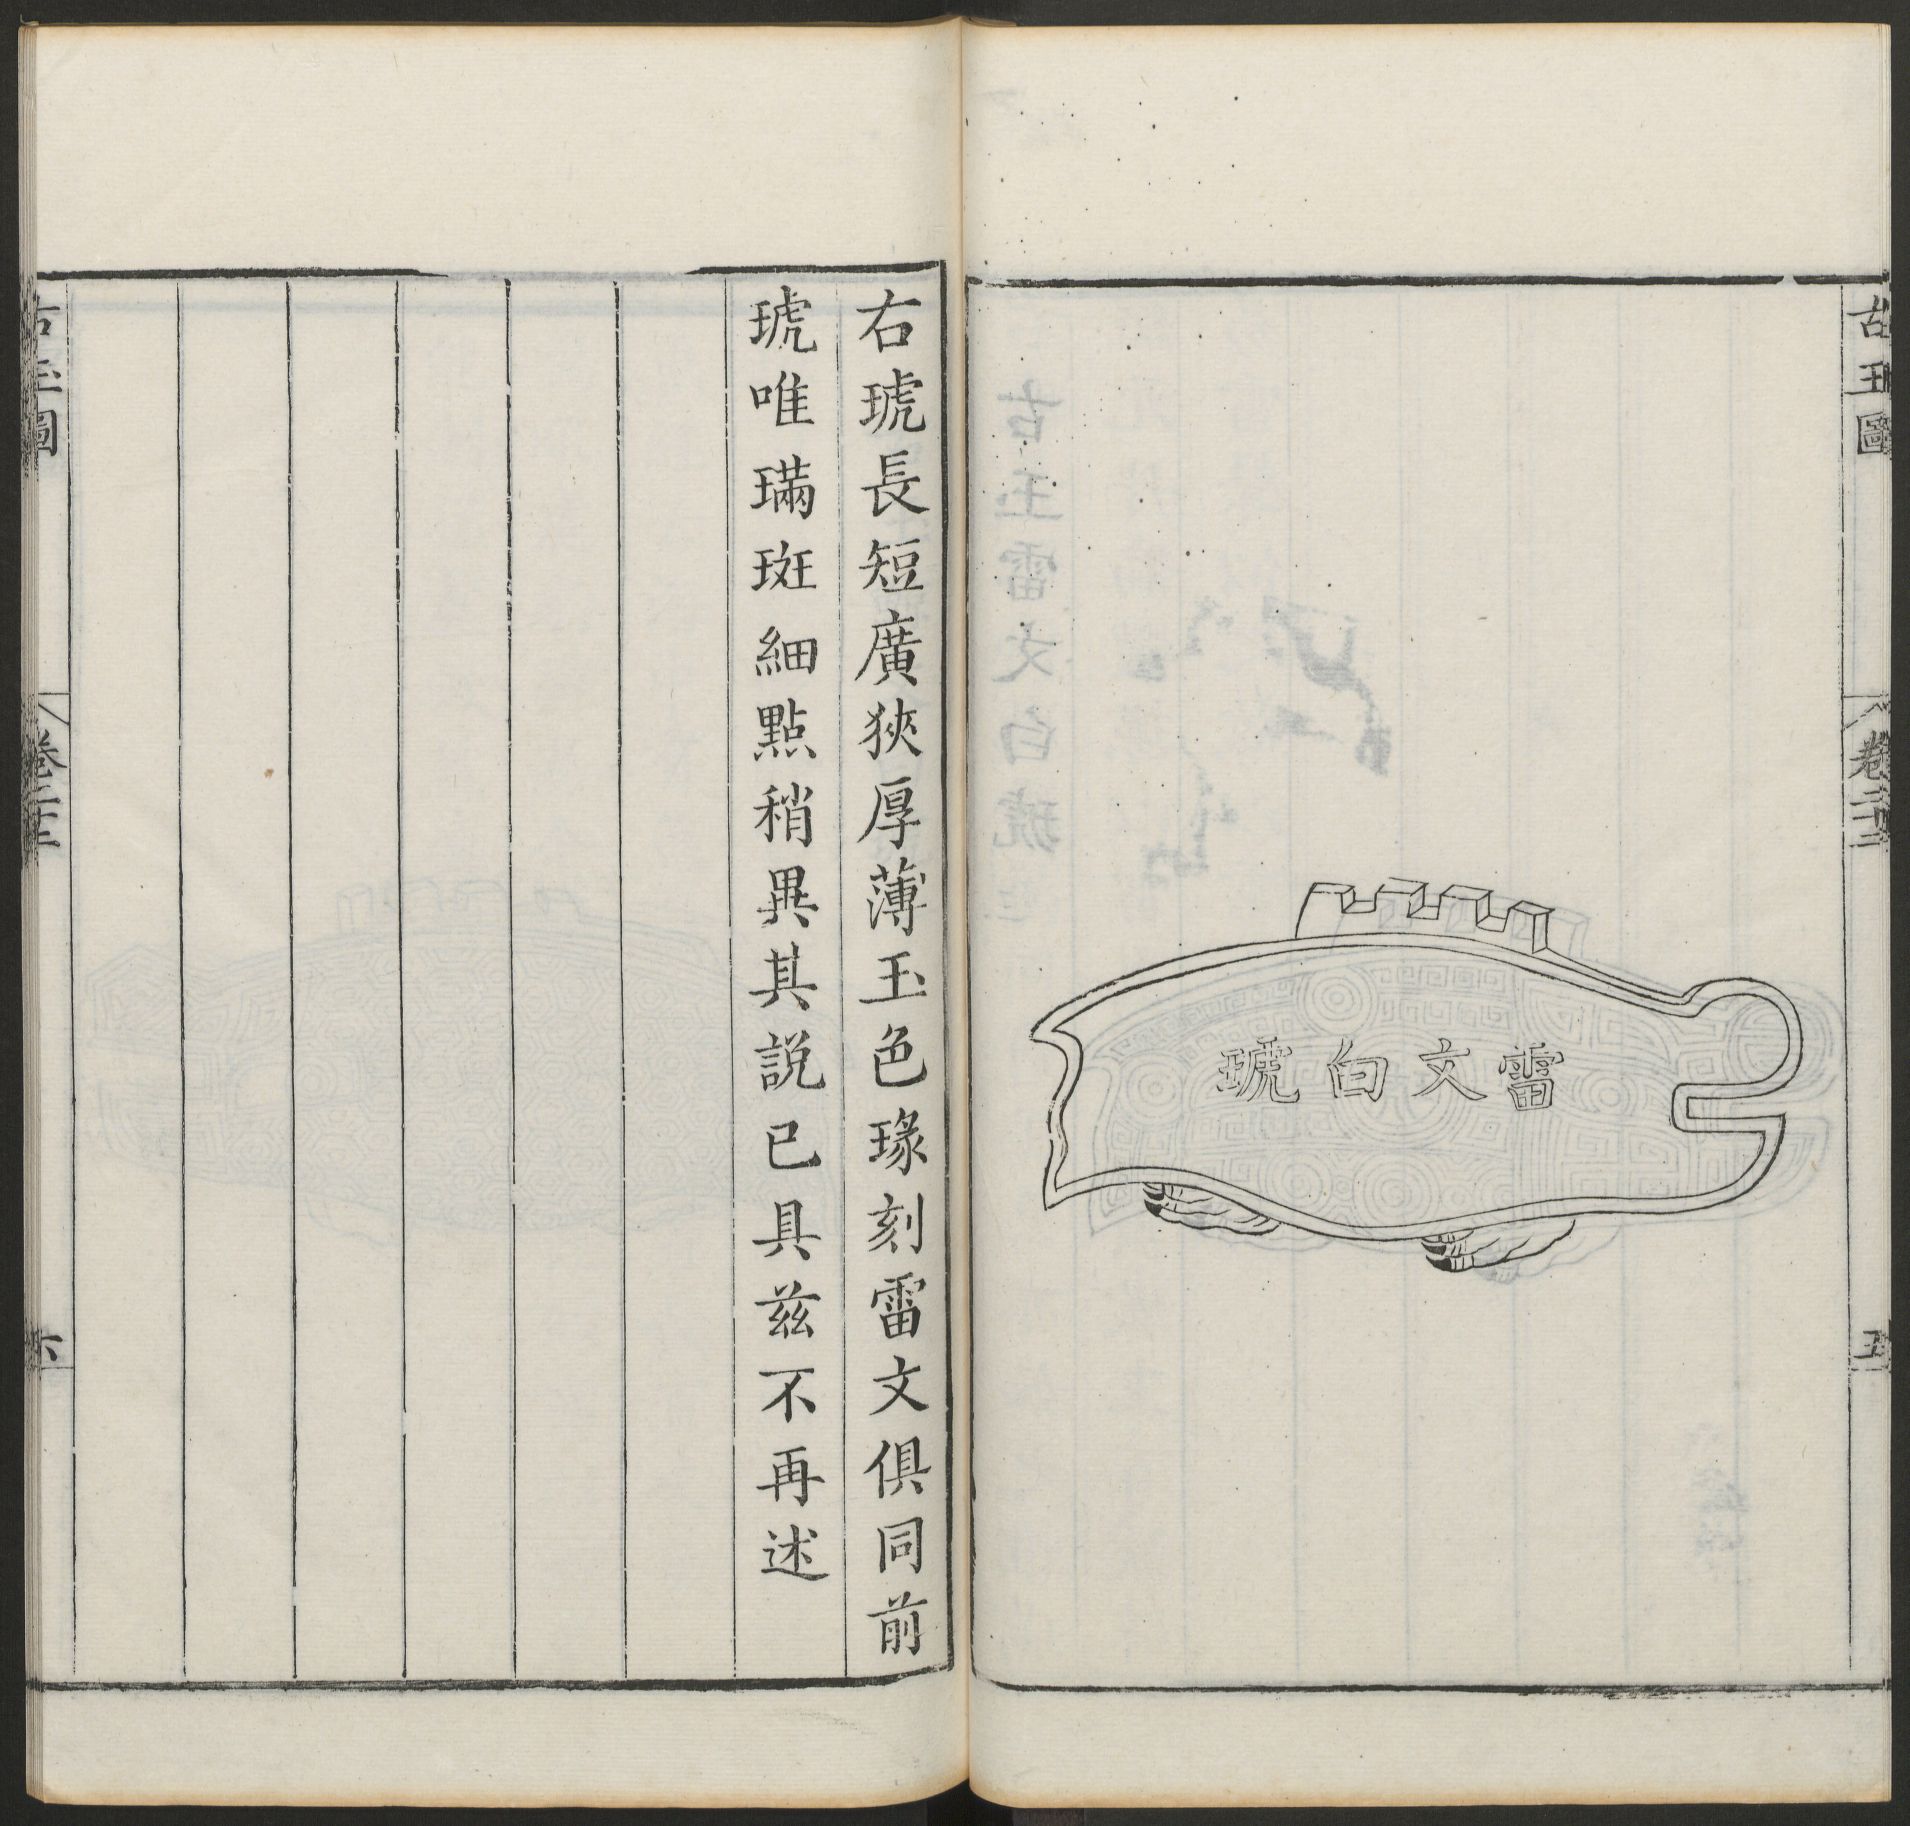 古玉圖
五
雷文白琥
右琥長短廣狹厚薄玉色瑑刻雷文俱同前
琥唯璊斑細點稍異其説已具兹不再述
古玉圖
六